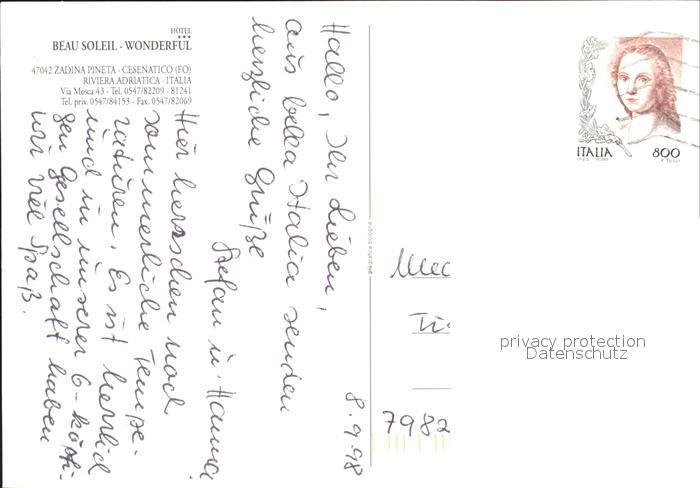 HOTEL
***
BEAU SOLEIL - WONDERFUL
47042 ZADINA PINETA - CESENATICO (FO)
RIVIERA ADRIATICA - ITALIA
Via Mosca 43 - Tel. 0547/82209 - 81241
Tel. priv. 0547/84153 - Fax. 0547/82069
Hallo, Ihr Lieben,
aus bella Italia senden
herzliche Grüße
Stefan u.
Hier herrschen noch
sommerliche Tempe-
raturen. Es ist herrlich
und in unserer 6-köpfi-
gen Gesellschaft haben
wir viel Spaß.
8.9.98
ITALIA 800
privacy protection
Datenschutz
7982